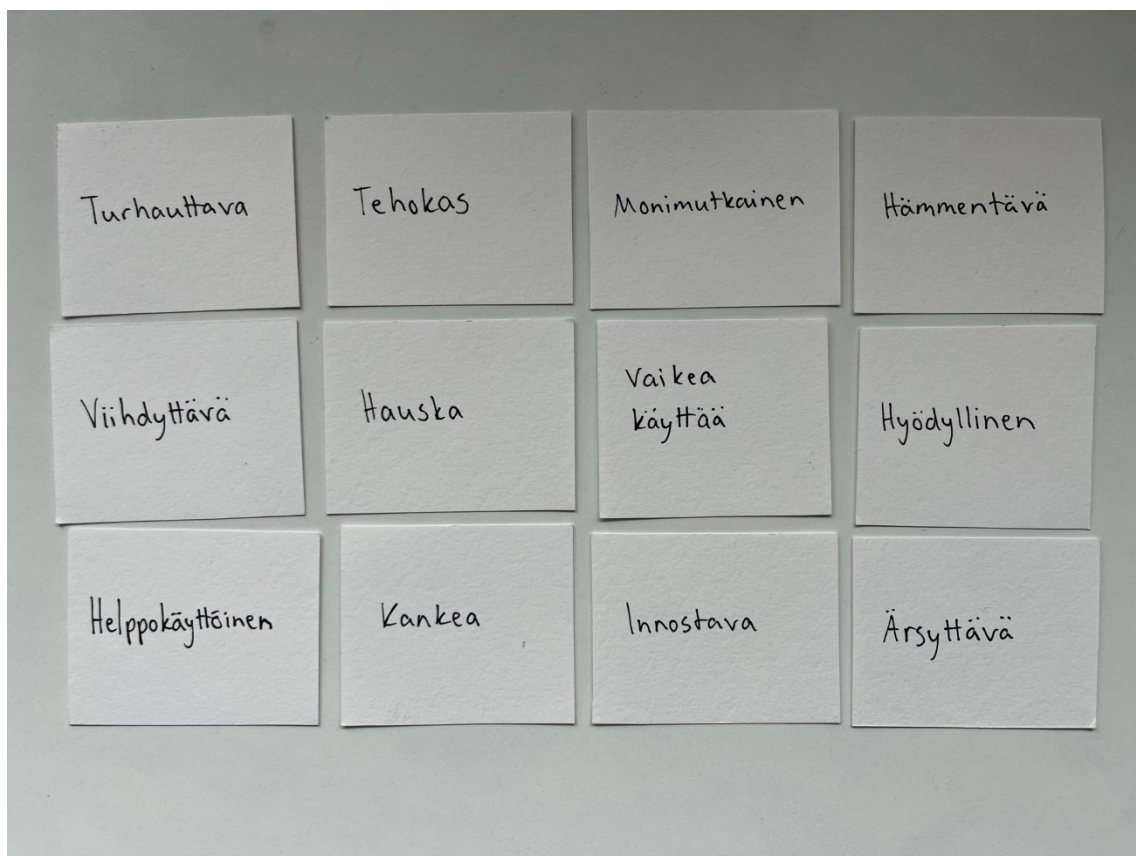 Turhauttava
Tehokas
Monimutkainen
Hämmentävä
Viihdyttävä
Hauska
Vaikea
käyttää
Hyödyllinen
Helppokäyttöinen
Kankea
Innostava
Ärsyttävä